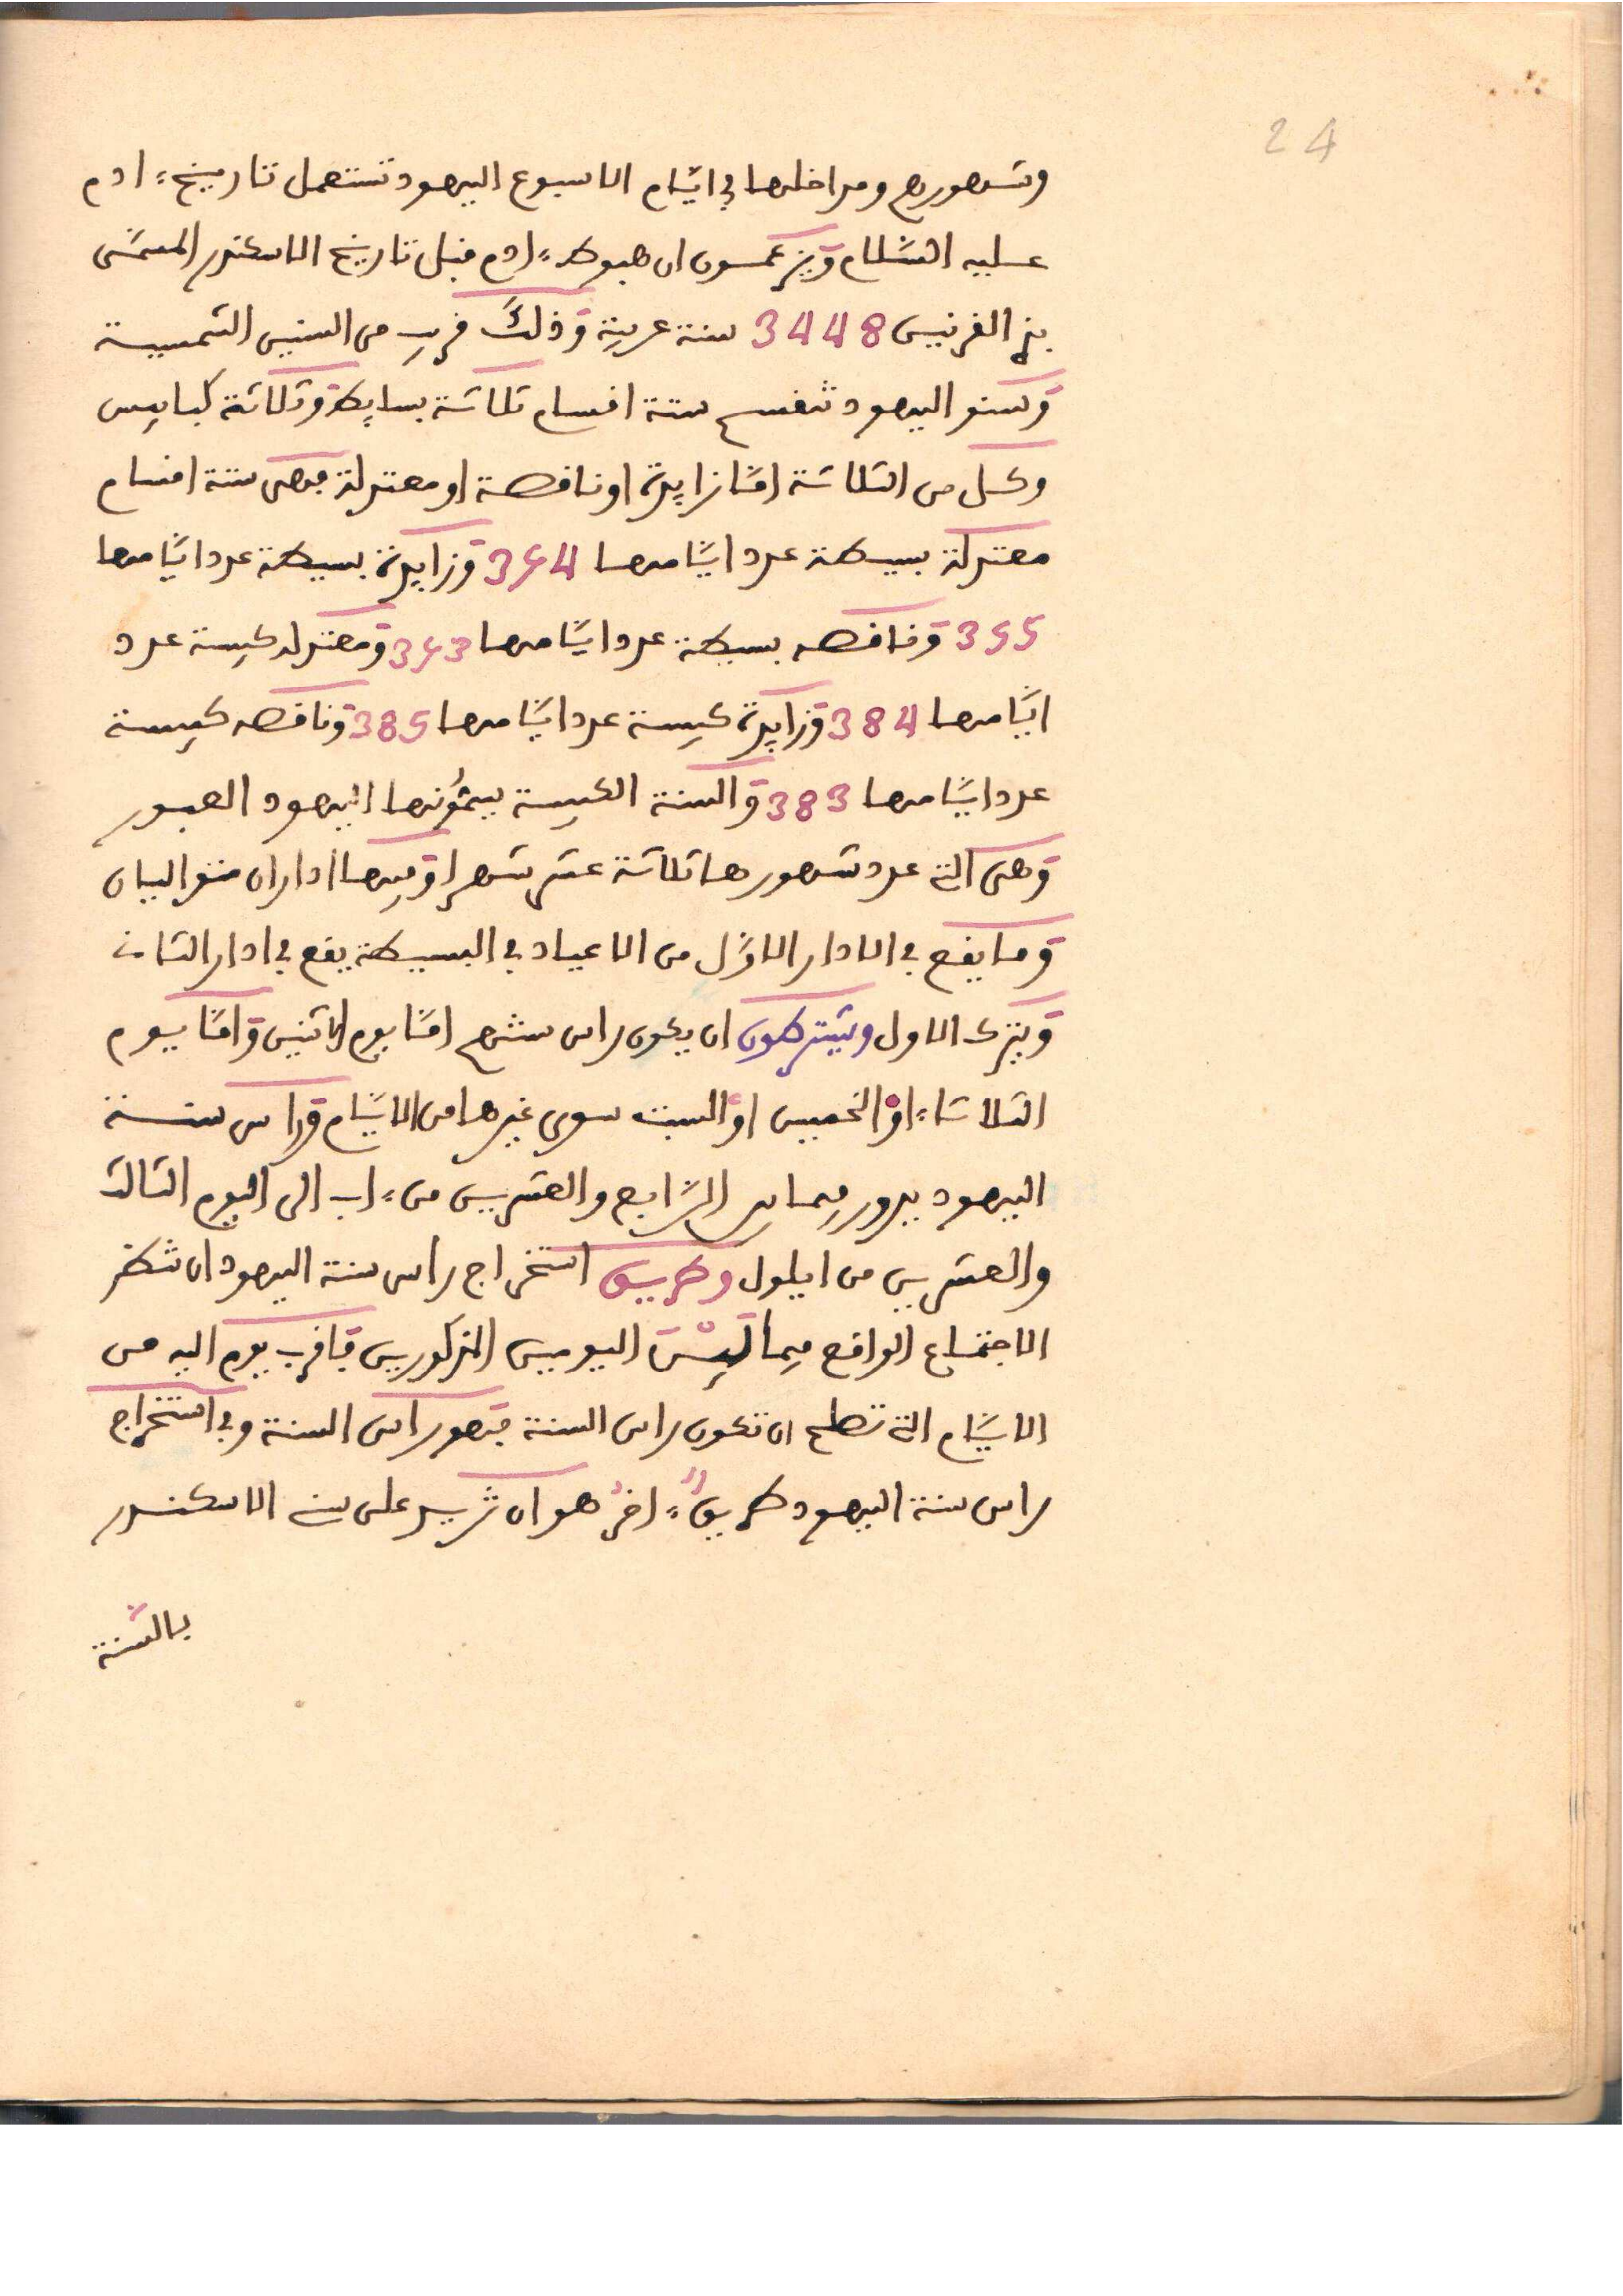 24
وشهورهم ومداخلها في ايّام الاسبوع اليهود تستعمل تاريخ ءادم
عليه السّلام وَيزعمون ان هبوط ءادم قبل تاريخ الاسكندر المسمّى
بذ القرنين 3448 سنة عربية وَذلكَ قريب من السنين الشمسية
وَسنو اليهود تنقسم ستة اقسام ثلاثة بسايط وَثلاثة كبايس
وكل من الثلاثة امّا زايدة او ناقصة او معتدلة فهى ستة اقسام
معتدلة بسيطة عدد ايّامها 354 وَزايدة بسيطة عدد ايّامها
355 وَناقصه بسيطة عدد ايّامها 353 وَمعتدله كبيسة عدد
ايّامها 384 وَزايدة كبيسة عدد ايّامها 385 وَناقصه كبيسة
عدد ايّامها 383 وَالسنة الكبيسة يسمُّونها اليهود العبور
وَهى التي عدد شهورها ثلاثة عشر شهرا وَفيها اداران متواليان
وَما يقع في الادار الاوّل من الاعياد في البسيطة يقع في ادار الثاني
وَيترك الاول ويشترطون ان يكون راس سنتهم امّا يوم الاثنين وَامّا يوم
الثلاثاء اوْ الخميس اوْ السبت سوى غيرها من الايّام وَراس سنة
اليهود يدور فيما بين الرّابع والعشرين من ءاب الى اليوم الثالث
والعشرين من ايلول وطريق استخراج راس سنة اليهود ان تنظر
الاجتماع الواقع فيما بَيْنَ اليومين المذكورين فَاقرب يوم اليه من
الايّام التي تصلح ان تكون راس السنة فَهو راس السنة وفي استخراج
راس سنة اليهود طريقٌ ءاخرُ هو ان تزيد على سني الاسكندر
بالسّنة